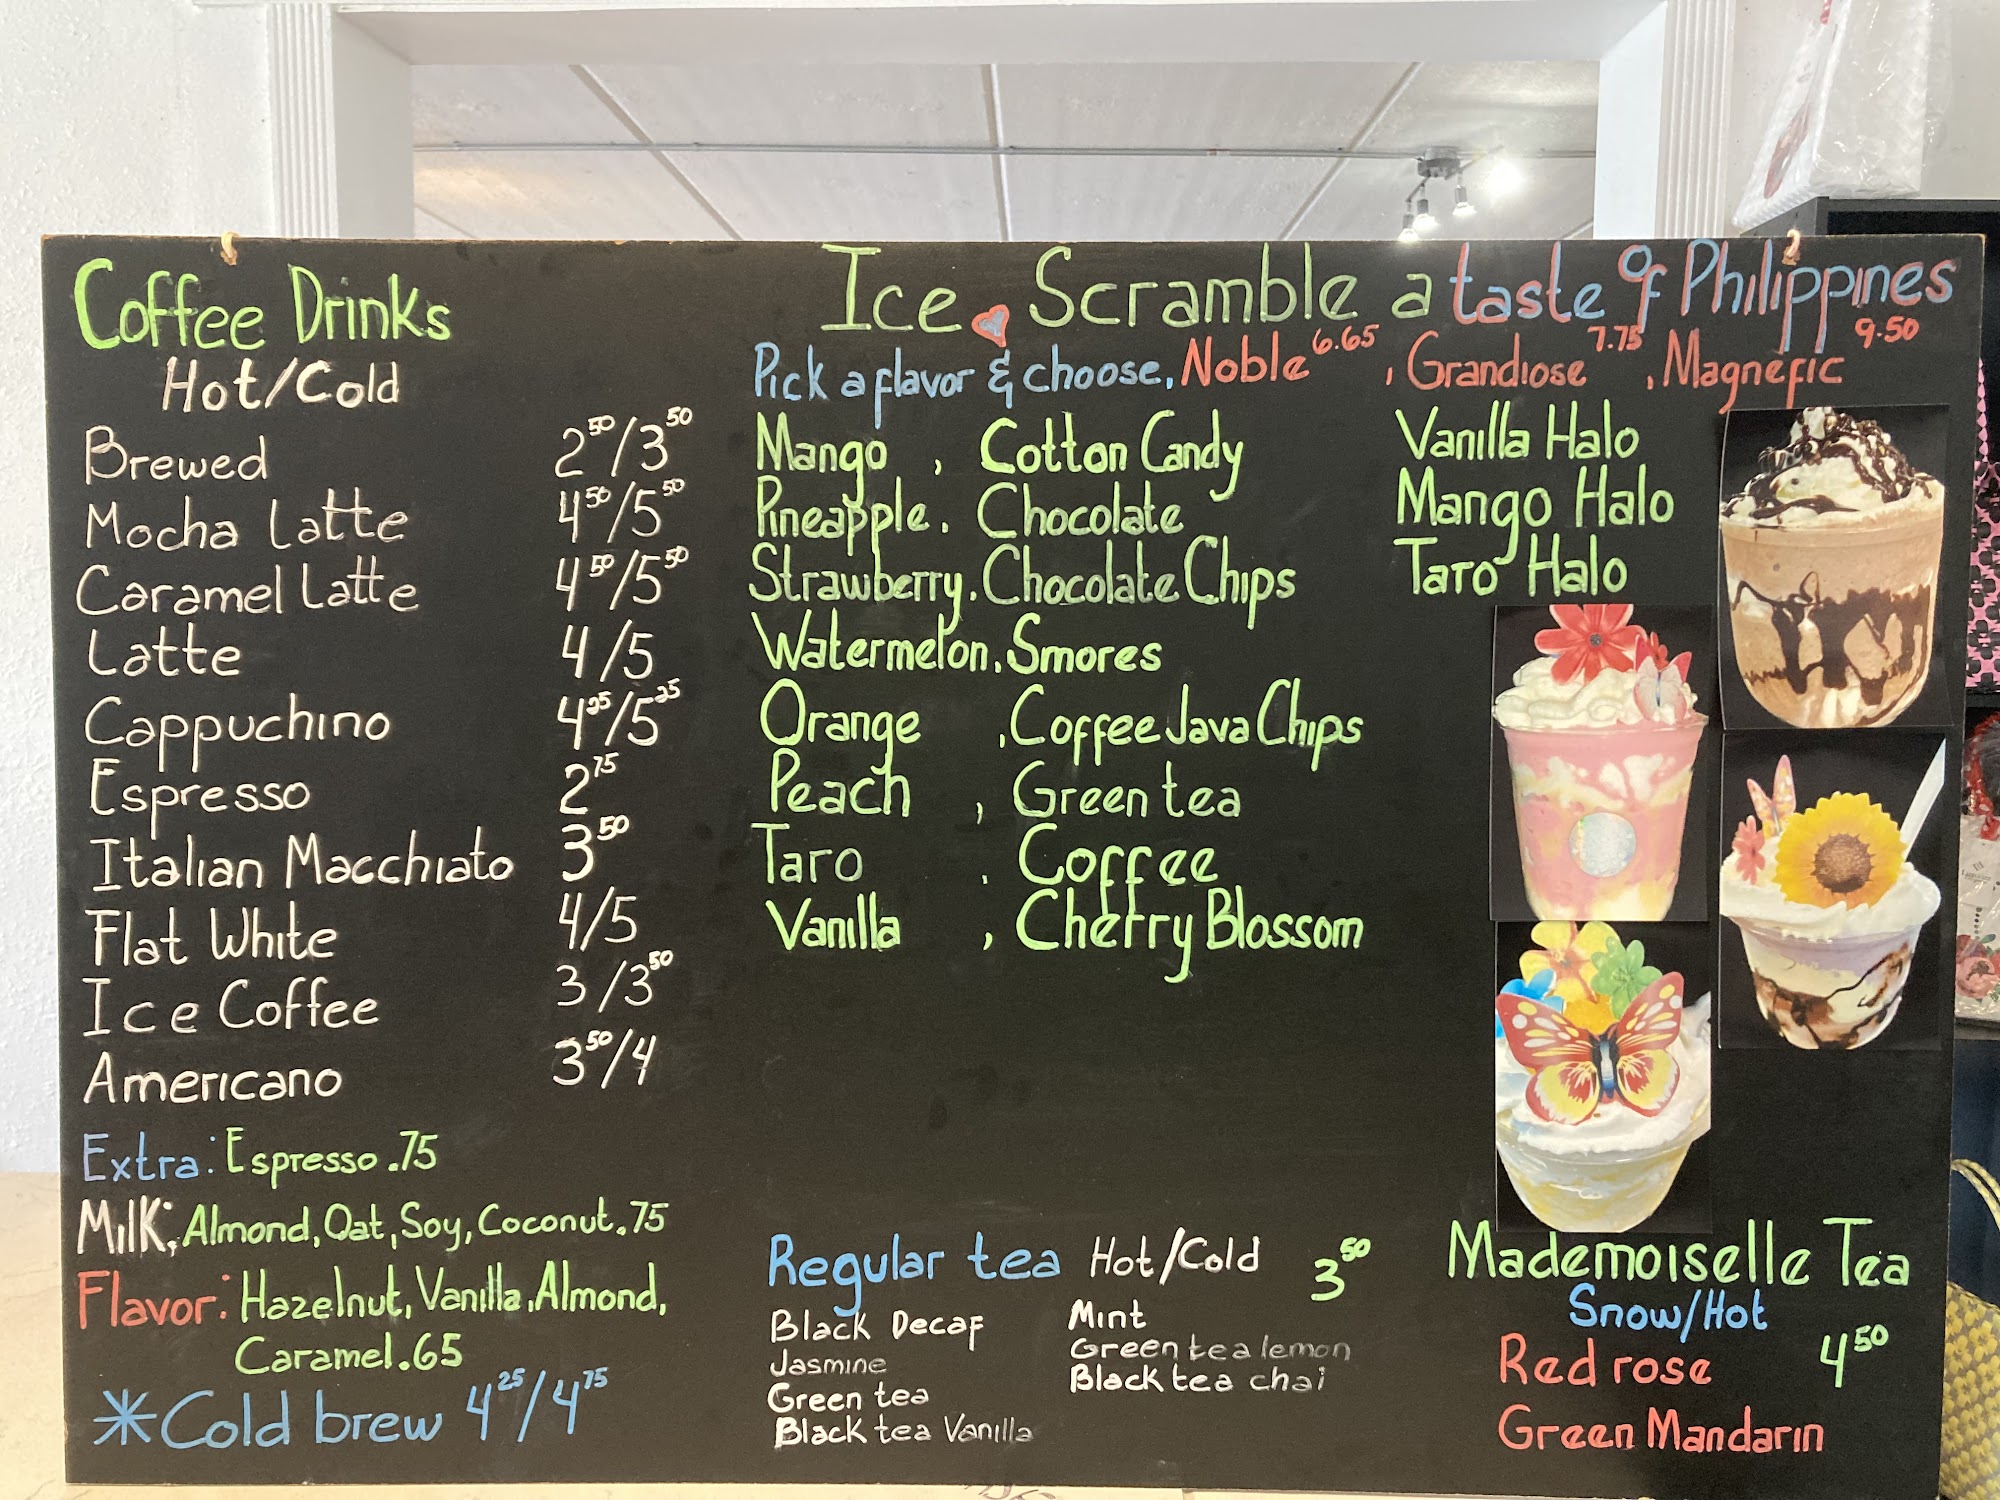 Coffee Drinks
Hot/Cold
Brewed 2.50/3.50
Mocha Latte 4.50/5.50
Caramel Latte 4.50/5.50
Latte 4/5
Cappuchino 4.25/5.25
Espresso 2.75
Italian Macchiato 3.50
Flat White 4/5
Ice Coffee 3/3.50
Americano 3.50/4
Extra: Espresso .75
Milk: Almond, Oat, Soy, Coconut .75
Flavor: Hazelnut, Vanilla, Almond,
Caramel .65
*Cold brew 4.25/4.75
Ice Scramble a taste of Philippines
Pick a flavor & choose, Noble 6.65, Grandiose 7.75, Magnefic 9.50
Mango, Cotton Candy
Pineapple, Chocolate
Strawberry, Chocolate Chips
Watermelon, Smores
Orange, Coffee Java Chips
Peach, Green tea
Taro, Coffee
Vanilla, Cherry Blossom
Vanilla Halo
Mango Halo
Taro Halo
Regular tea Hot/Cold 3.50
Black Decaf
Jasmine
Green tea
Black tea Vanilla
Mint
Green tea lemon
Black tea chai
Mademoiselle Tea
Snow/Hot
Red rose 4.50
Green Mandarin